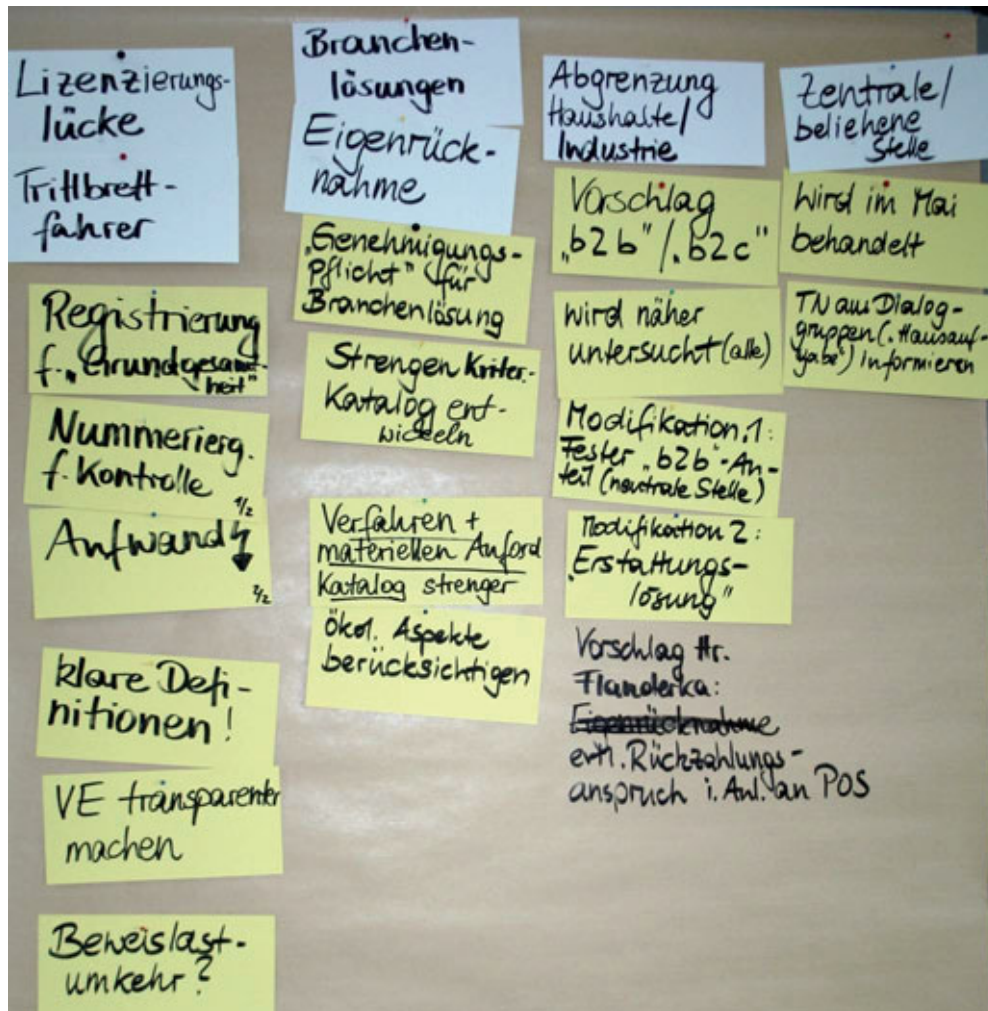 Lizenzierungs-
lücke
Trittbrett-
fahrer
Registrierung
f. „Grundgesamt-
heit"
Nummerierg.
f. Kontrolle
1/2
Aufwand
2/2
klare Defi-
nitionen!
VE transparenter
machen
Beweislast-
umkehr?
Branchen-
lösungen
Eigenrück-
nahme
„Genehmigungs-
pflicht" für
Branchenlösung
Strengen Kriter.-
Katalog ent-
wickeln
Verfahren +
materiellen Anford
Katalog strenger
Ökol. Aspekte
berücksichtigen
Abgrenzung
Haushalte/
Industrie
Vorschlag
„b2b"/„b2c"
wird näher
untersucht (alle)
Modifikation 1:
Fester „b2b"-An-
teil (neutrale Stelle)
Modifikation 2:
„Erstattungs-
lösung"
Vorschlag Hr.
Flanderka:
Eigenrücknahme
evtl. Rückzahlungs-
anspruch i. Anl. an POS
Zentrale/
beliehene
Stelle
Wird im Mai
behandelt
TN aus Dialog-
gruppen („Hausauf-
gabe") informieren